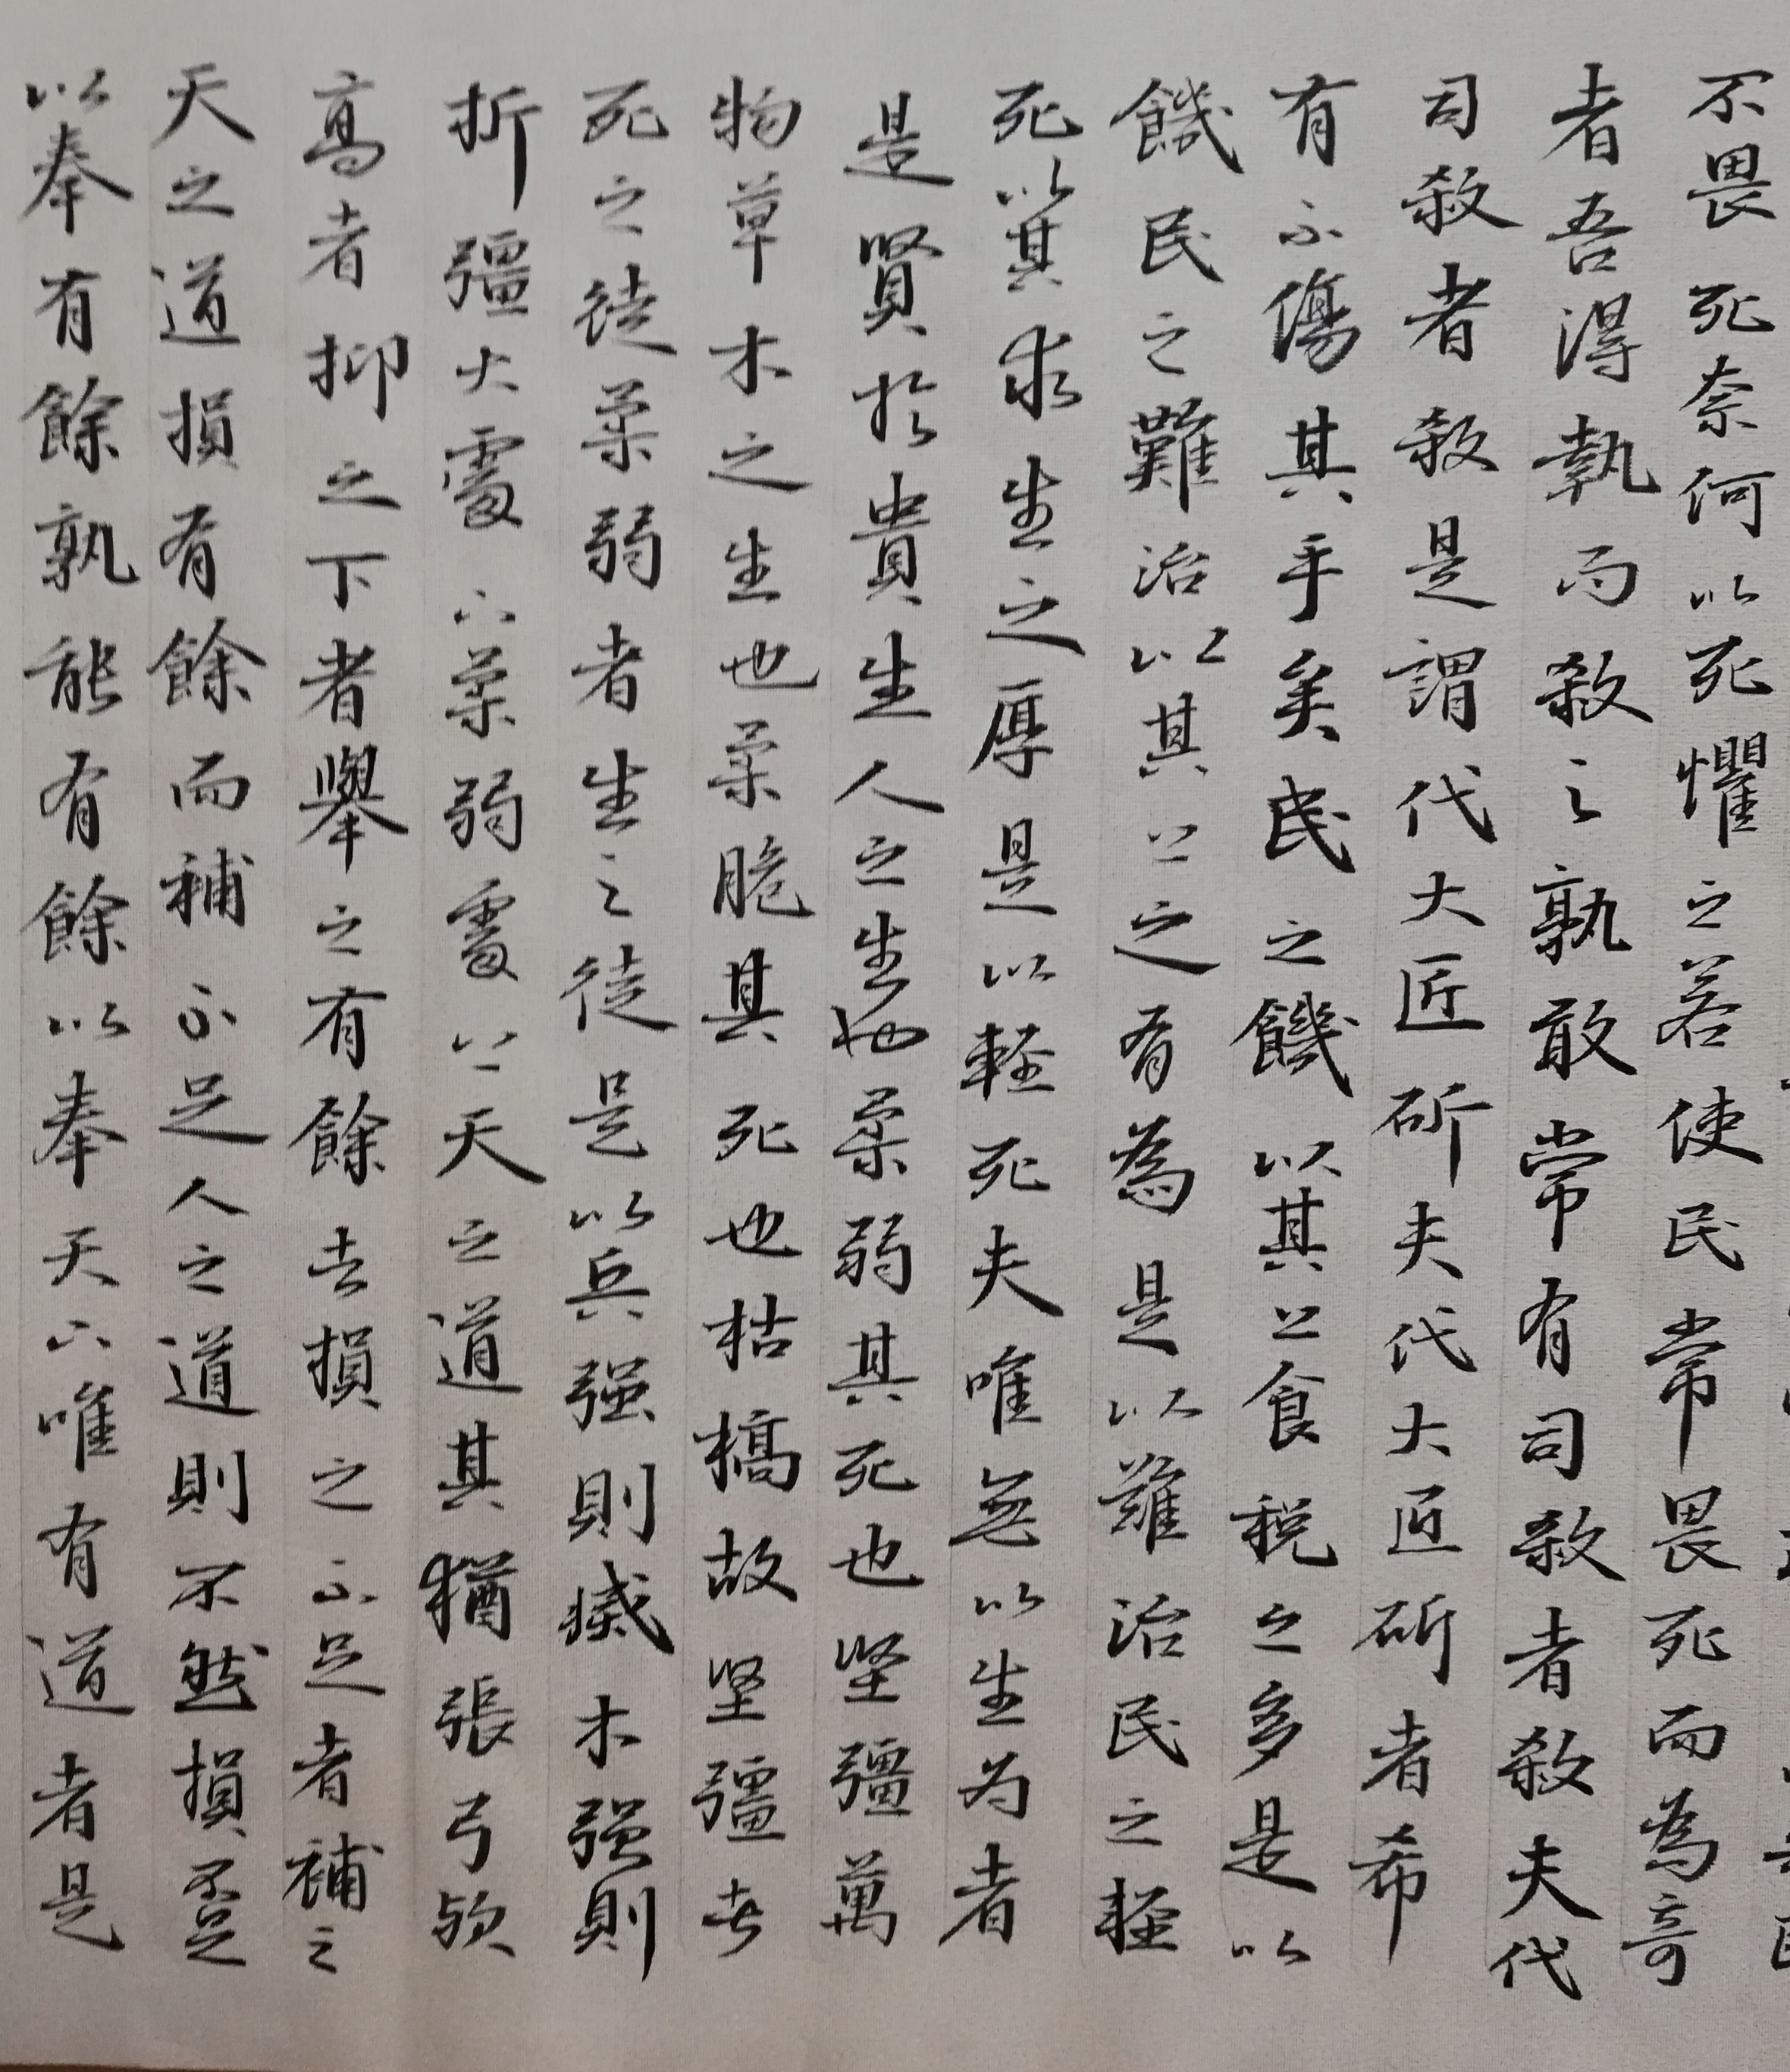 不畏死奈何以死懼之若使民常畏死而為奇
者吾得執而殺之孰敢常有司殺者殺夫代
司殺者殺是謂代大匠斫夫代大匠斫者希
有不傷其手矣民之饑以其上食税之多是以
饑民之難治以其上之有為是以難治民之輕
死以其求生之厚是以輕死夫唯無以生为者
是賢於貴生人之生也柔弱其死也坚彊萬
物草木之生也柔脆其死也枯槁故坚彊者
死之徒柔弱者生之徒是以兵强則滅木强則
折彊大處下柔弱處上天之道其猶張弓欤
高者抑之下者舉之有餘者損之不足者補之
天之道損有餘而補不足人之道則不然損不足
以奉有餘孰能有餘以奉天下唯有道者是